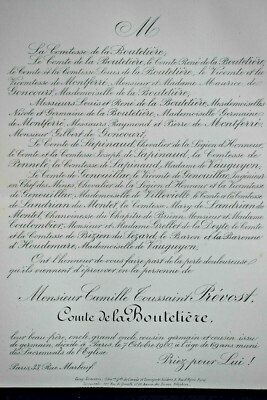 M
La Comtesse de la Boutetière,
Le Comte de la Boutetière, le Comte René de la Boutetière,
le Comte et la Comtesse Louis de la Boutetière, le Vicomte et la
Vicomtesse de Montferré, Monsieur et Madame Maurice de
Gencourt, Mademoiselle de la Boutetière,
Messieurs Louis et René de la Boutetière, Mesdemoiselles
Nicole et Germaine de la Boutetière, Mademoiselle Germaine
de Montferré, Messieurs Raymond et Pierre de Montferré,
Monsieur Gilbert de Gencourt,
Le Comte de Lapinaud, Chevalier de la Légion d'Honneur,
le Comte et la Comtesse Joseph de Lapinaud, la Comtesse de
la Comtesse de Lapinaud, Madame de Vauguyon,
Le Comte de Genouillac, le Vicomte de Genouillac, Ingénieur
en Chef des Mines, Chevalier de la Légion d'Honneur et la Vicomtesse
de Genouillac, Mesdemoiselles de Villevielle, le Comte et la Comtesse
de Landrian du Montet, la Comtesse Mary de Landrian du
Montet, Chanoinesse du Chapitre de Brünn, Monsieur et Madame
Coulombier, Monsieur et Madame de la Doyle, le Comte
et la Comtesse de Bizeau du Lézard, le Baron et la Baronne
d'Houdemare, Mademoiselle de Vauguyon,
Ont l'honneur de vous faire part de la perte douloureuse
qu'ils viennent d'éprouver en la personne de
Monsieur Camille Toussaint Prévost,
Comte de la Boutetière,
leur beau frère, oncle, grand oncle, cousin germain et cousin issu
de germain, décédé à Paris, le 7 Octobre à l'âge de 69 ans, muni
des Sacrements de l'Église.
Priez pour Lui!
Paris, 33, Rue Marbeuf.